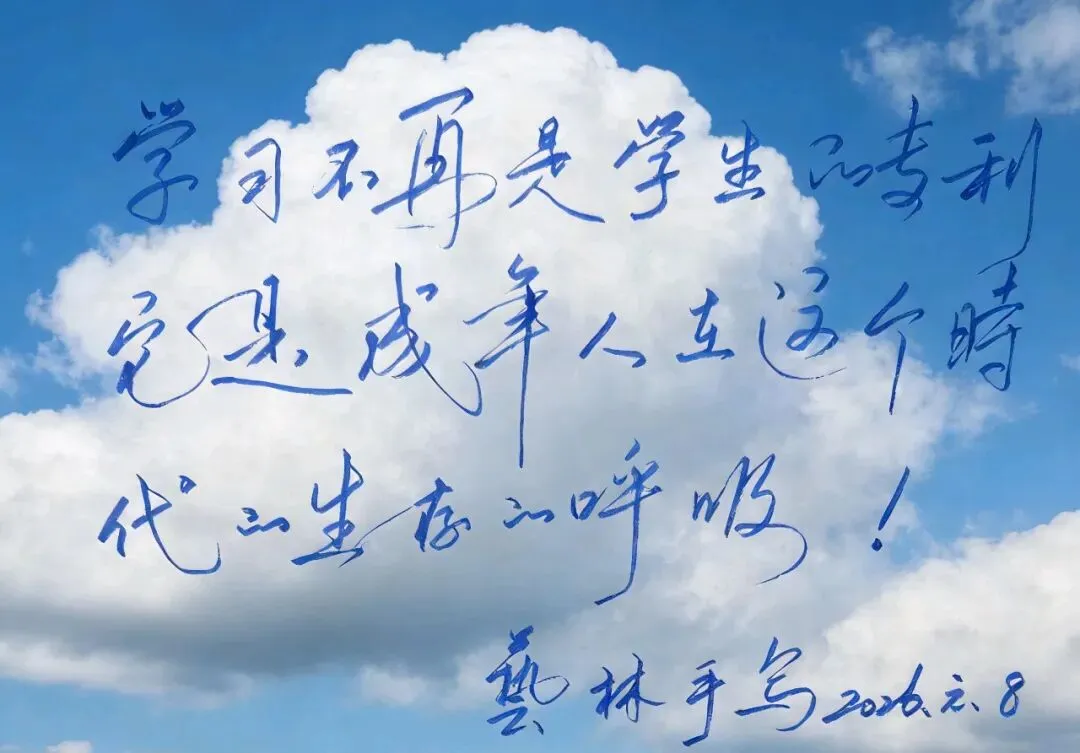 学习不再是学生的专利
它是成年人在这个時
代的生存的呼吸！
藝林手写2026.元.8